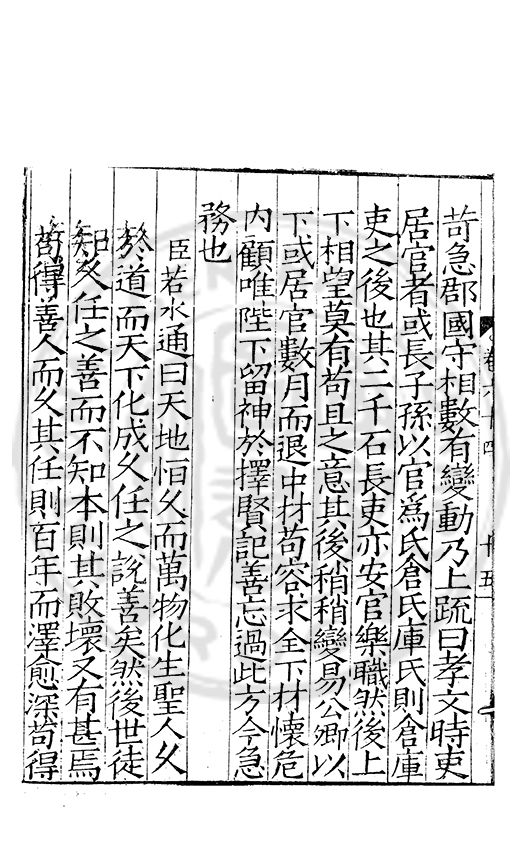 苛急郡國守相數有變動乃上疏曰孝文時吏
居官者或長子孫以官爲氏倉氏庫氏則倉庫
吏之後也其二千石長吏亦安官樂職然後上
下相望莫有苟且之意其後稍稍變易公卿以
下或居官數月而退中材苟容求全下材懷危
內顧唯陛下留神於擇賢記善忘過此方今急
務也
臣若水通曰天地恒久而萬物化生聖人久
於道而天下化成久任之說善矣然後世徒
知久任之善而不知本則其敗壞又有甚焉
苟得善人而久其任則百年而澤愈深苟得
卷六十四
十五